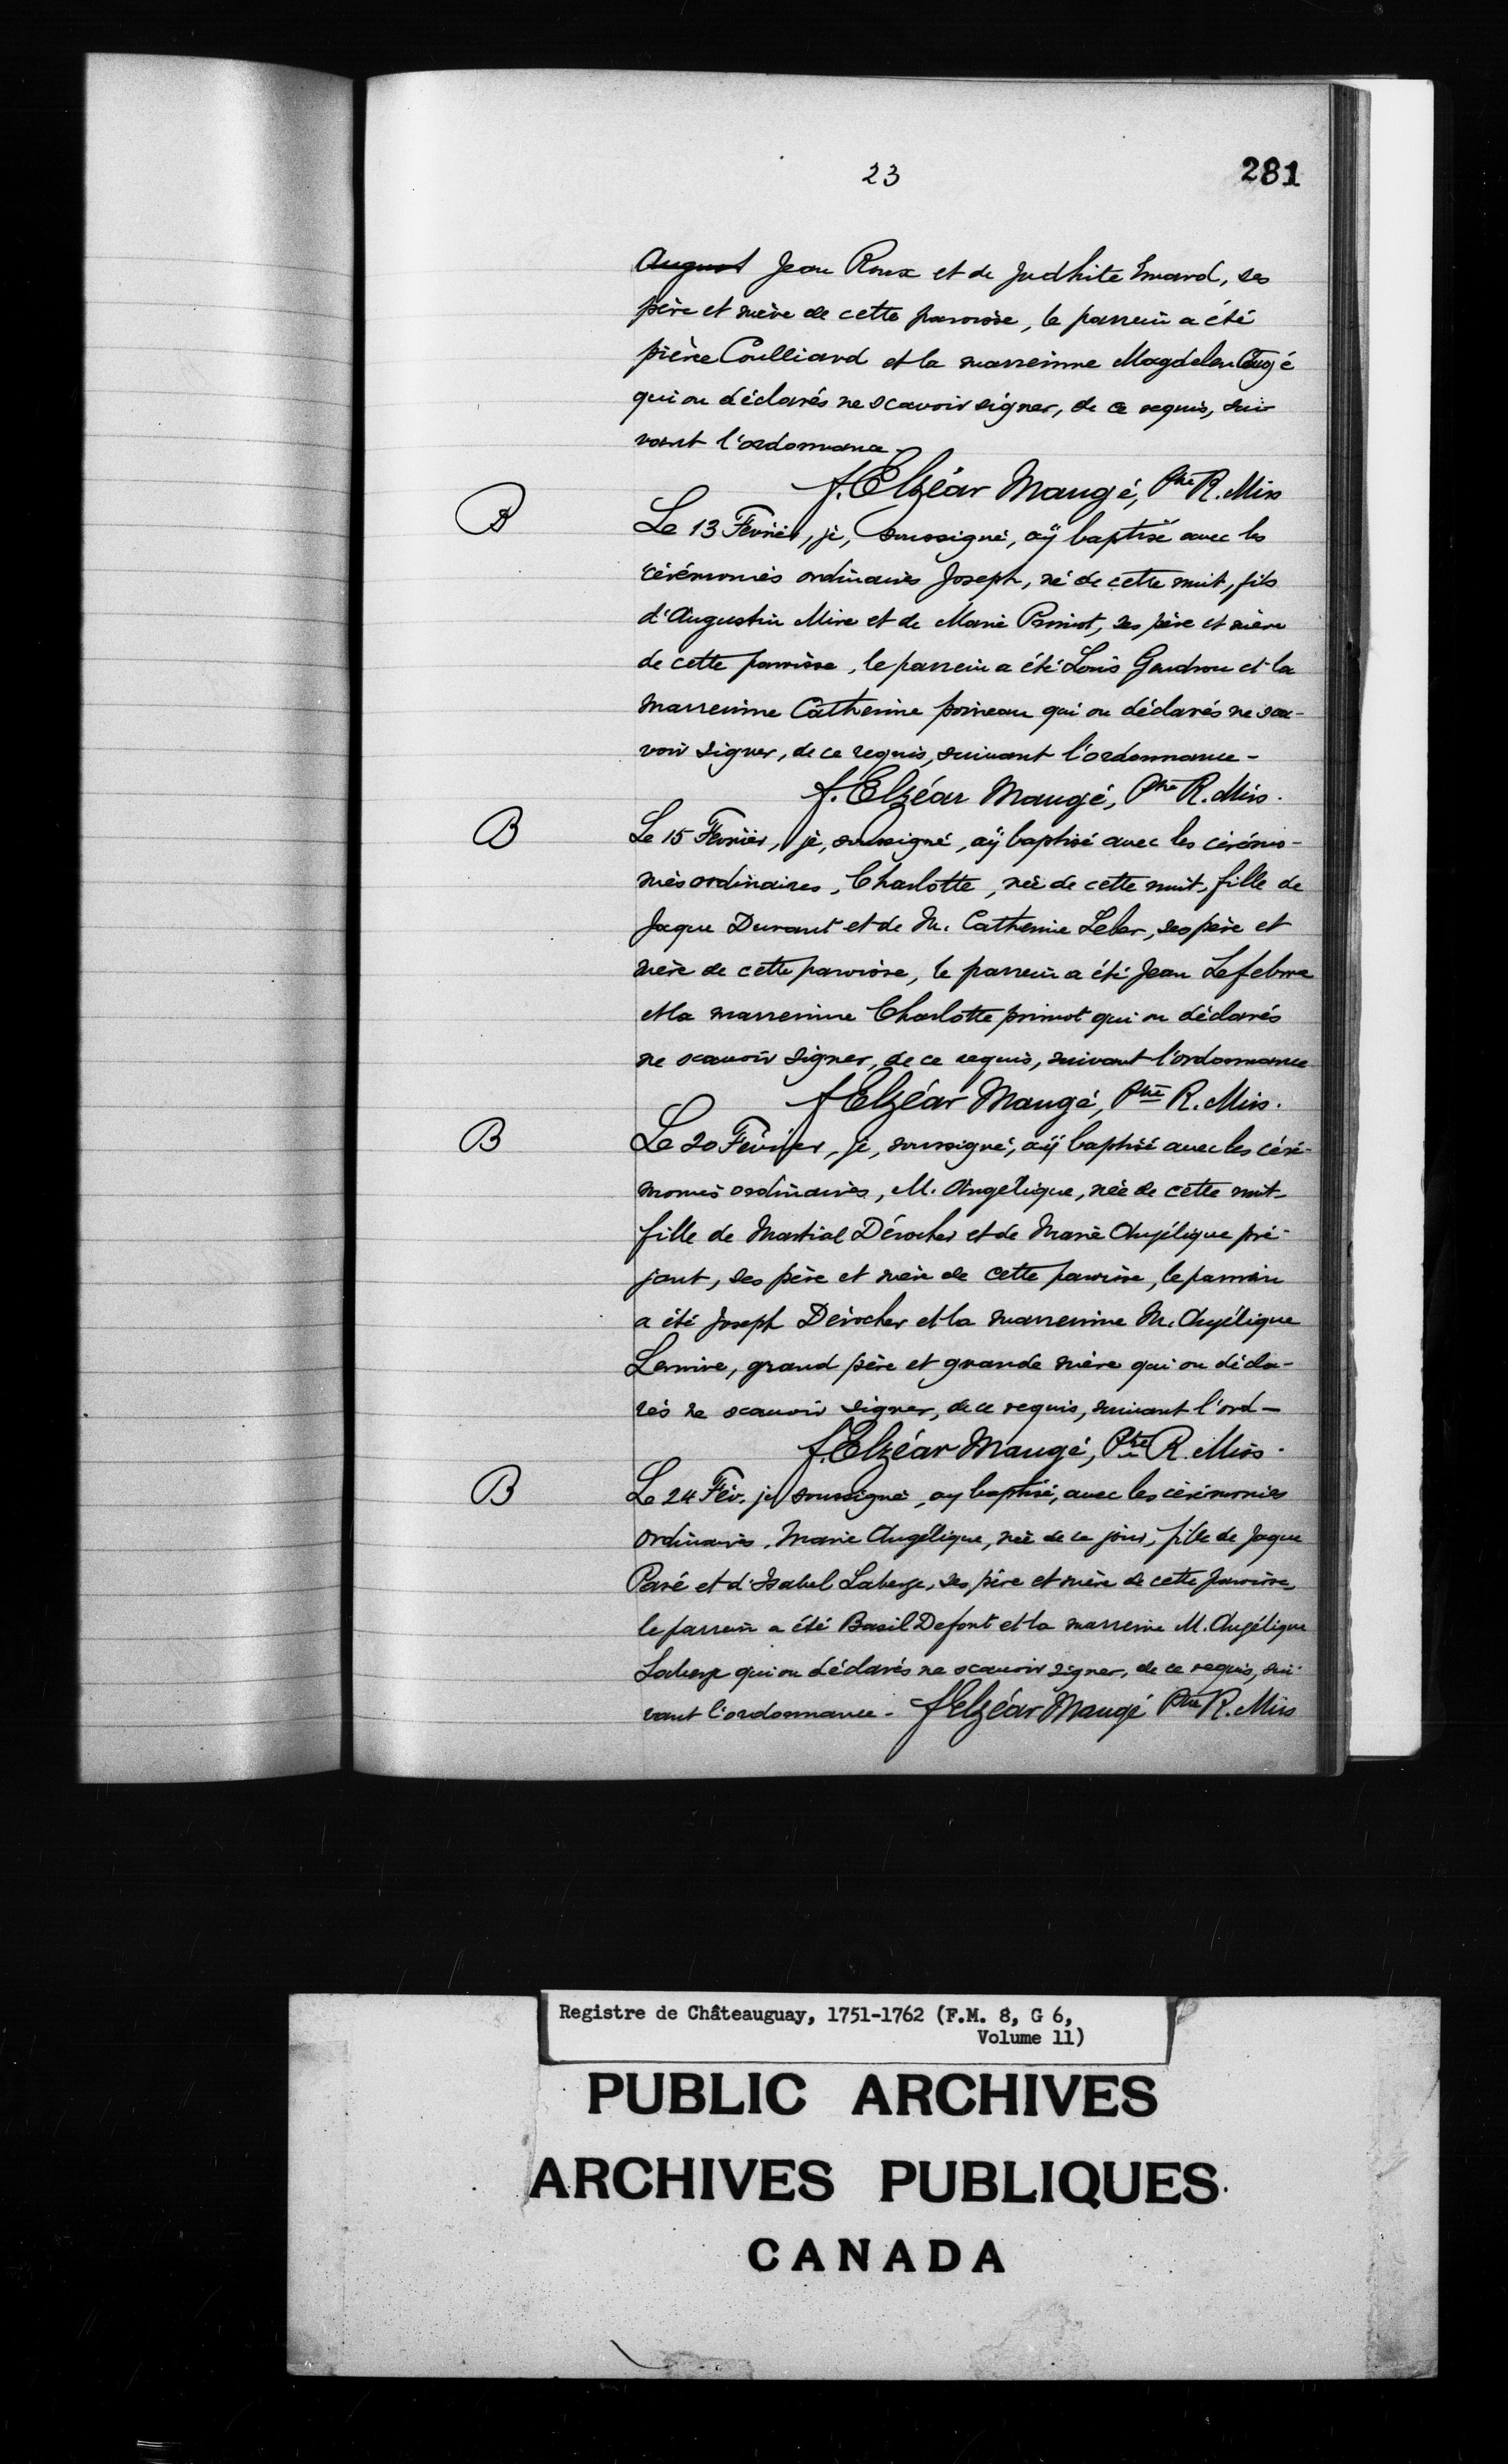 23
281
August Jean Roux et de Judhite Emard, ses
père et mère de cette paroisse, le parrein a été
pière Coulliard et la marreinne Magdelen
qui on déclarés ne scavoir signer, de ce requis, sui-
vant l'ordonnance -
f. Elzéar Maugé, Ptre R. Miss
B
Le 13 Février, je, soussigné, aÿ baptisé avec les
cérémonies ordinaires Joseph, né de cette nuit, fils
d'Augustin Mire et de Marie Primot, ses père et mère
de cette paroisse, le parrein a été Louis Gendron et la
marreinne Catherine poineau qui on déclarés ne sca-
voir signer, de ce requis, suivant l'ordonnance -
f. Elzéar Maugé, Ptre R. Miss.
B
Le 15 Février, je, soussigné, aÿ baptisé avec les cérémo-
nies ordinaires, Charlotte, née de cette nuit, fille de
Jaque Durant et de M. Catherine Leber, ses père et
mère de cette paroisse, le parrein a été Jean Lefebvre
et la marreinne Charlotte primot qui on déclarés
ne scavoir signer, de ce requis, suivant l'ordonnance
f Elzéar Maugé, Ptre R. Miss.
B
Le 20 Février, je, soussigné, aÿ baptisé avec les céré-
monies ordinaires, M. Angélique, née de cette nuit -
fille de Martial Dérocher et de Marie Angélique pré-
jant, ses père et mère de cette paroisse, le parrein
a été Joseph Dérocher et la marreinne M. Angélique
Lemire, grand père et grande mère qui on décla-
rés ne scavoir signer, de ce requis, suivant l'ord -
f. Elzéar Maugé, Ptre R. Miss.
B
Le 24 Fév. je soussigné, ay baptisé, avec les cérémonies
ordinaires, Marie Angélique, née de ce jour, fille de Jaque
Paré et d'Isabel Laberge, ses père et mère de cette paroisse,
le parrein a été Basil Defont et la marreine M. Angélique
Laberge qui on déclarés ne scavoir signer, de ce requis, sui-
vant l'ordonnance - f Elzéar Maugé Ptre R. Miss
Registre de Châteauguay, 1751-1762 (F.M. 8, G 6,
Volume 11)
PUBLIC ARCHIVES
ARCHIVES PUBLIQUES
CANADA